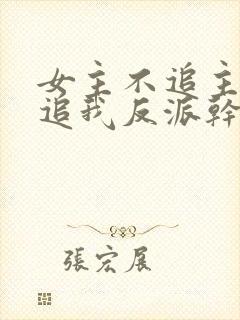 女主不追主
追我反派幹
張宏展